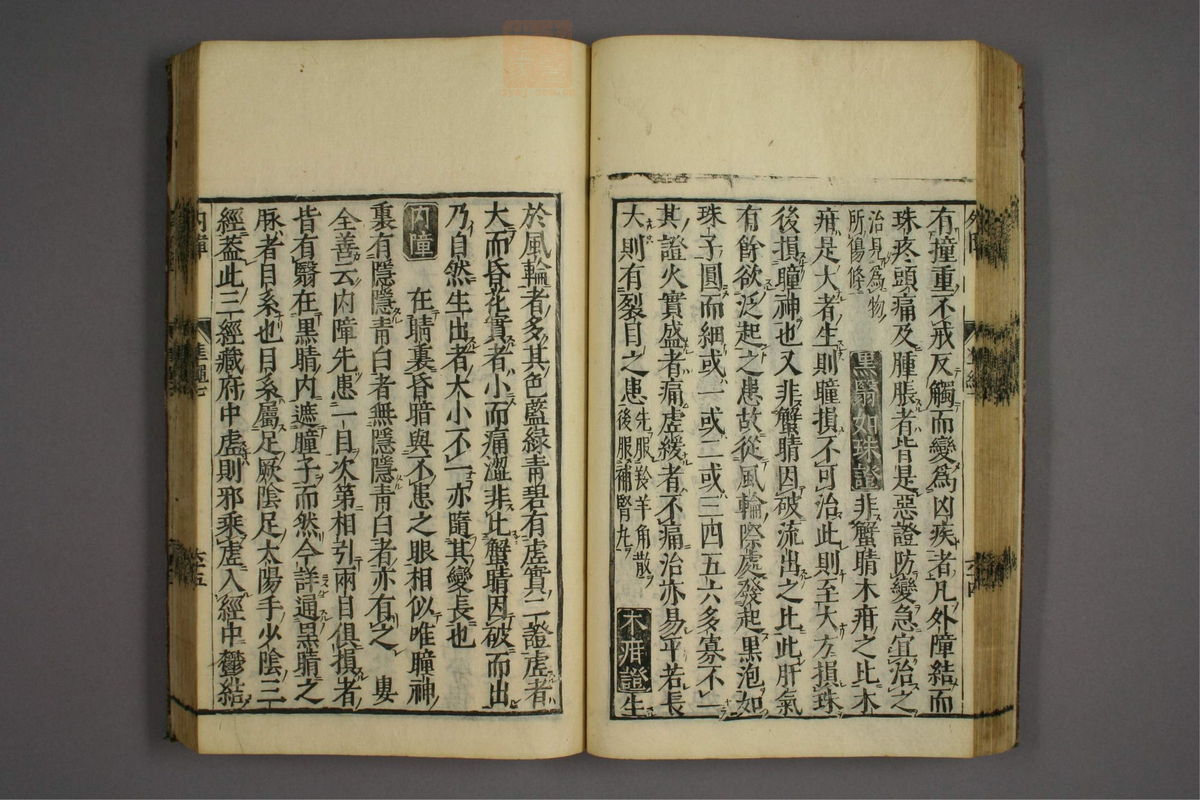 有撞重不戒反觸而變爲凶疾者凡外障結而
珠疼頭痛及腫脹者皆是惡證防變急宜治之
治見爲物
所傷條
黑翳如珠證非蟹睛木疳之比木
疳是大者生則瞳損不可治此則至大方損珠
後損瞳神也又非蟹睛因破流出之比此肝氣
有餘欲泛起之患故從風輪際處發起黑泡如
珠子圓而細或一或二或三四五六多寡不一
其證火實盛者痛虛緩者不痛治亦易平若長
大則有裂目之患
先服羚羊角散
後服補腎丸
木疳證生
於風輪者多其色藍綠青碧有虛實二證虛者
大而昏花實者小而痛澀非比蟹睛因破而出
乃自然生出者大小不一亦隨其變長也
內障
在睛裏昏暗與不患之眼相似唯瞳神
裏有隱隱青白者無隱隱青白者亦有之　婁
全善云內障先患一目次第相引兩目俱損者
皆有翳在黑睛內遮瞳子而然今詳通黑睛之
脉者目系也目系屬足厥陰足太陽手少陰三
經蓋此三經藏府中虛則邪乘虛入經中鬱結
內障